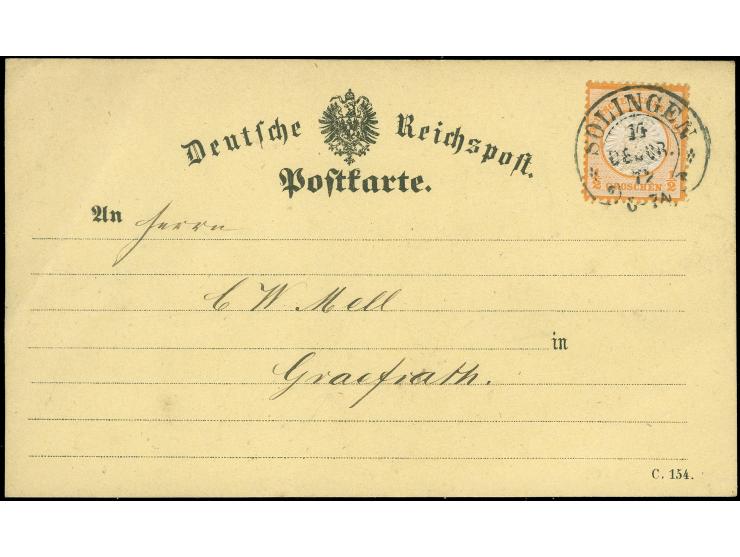 Deutsche Reichspost.
Postkarte.
SOLINGEN
DECBR.
72
2 GROSCHEN 2
An Herrn
C W Mell
in
Graefrath.
C. 154.